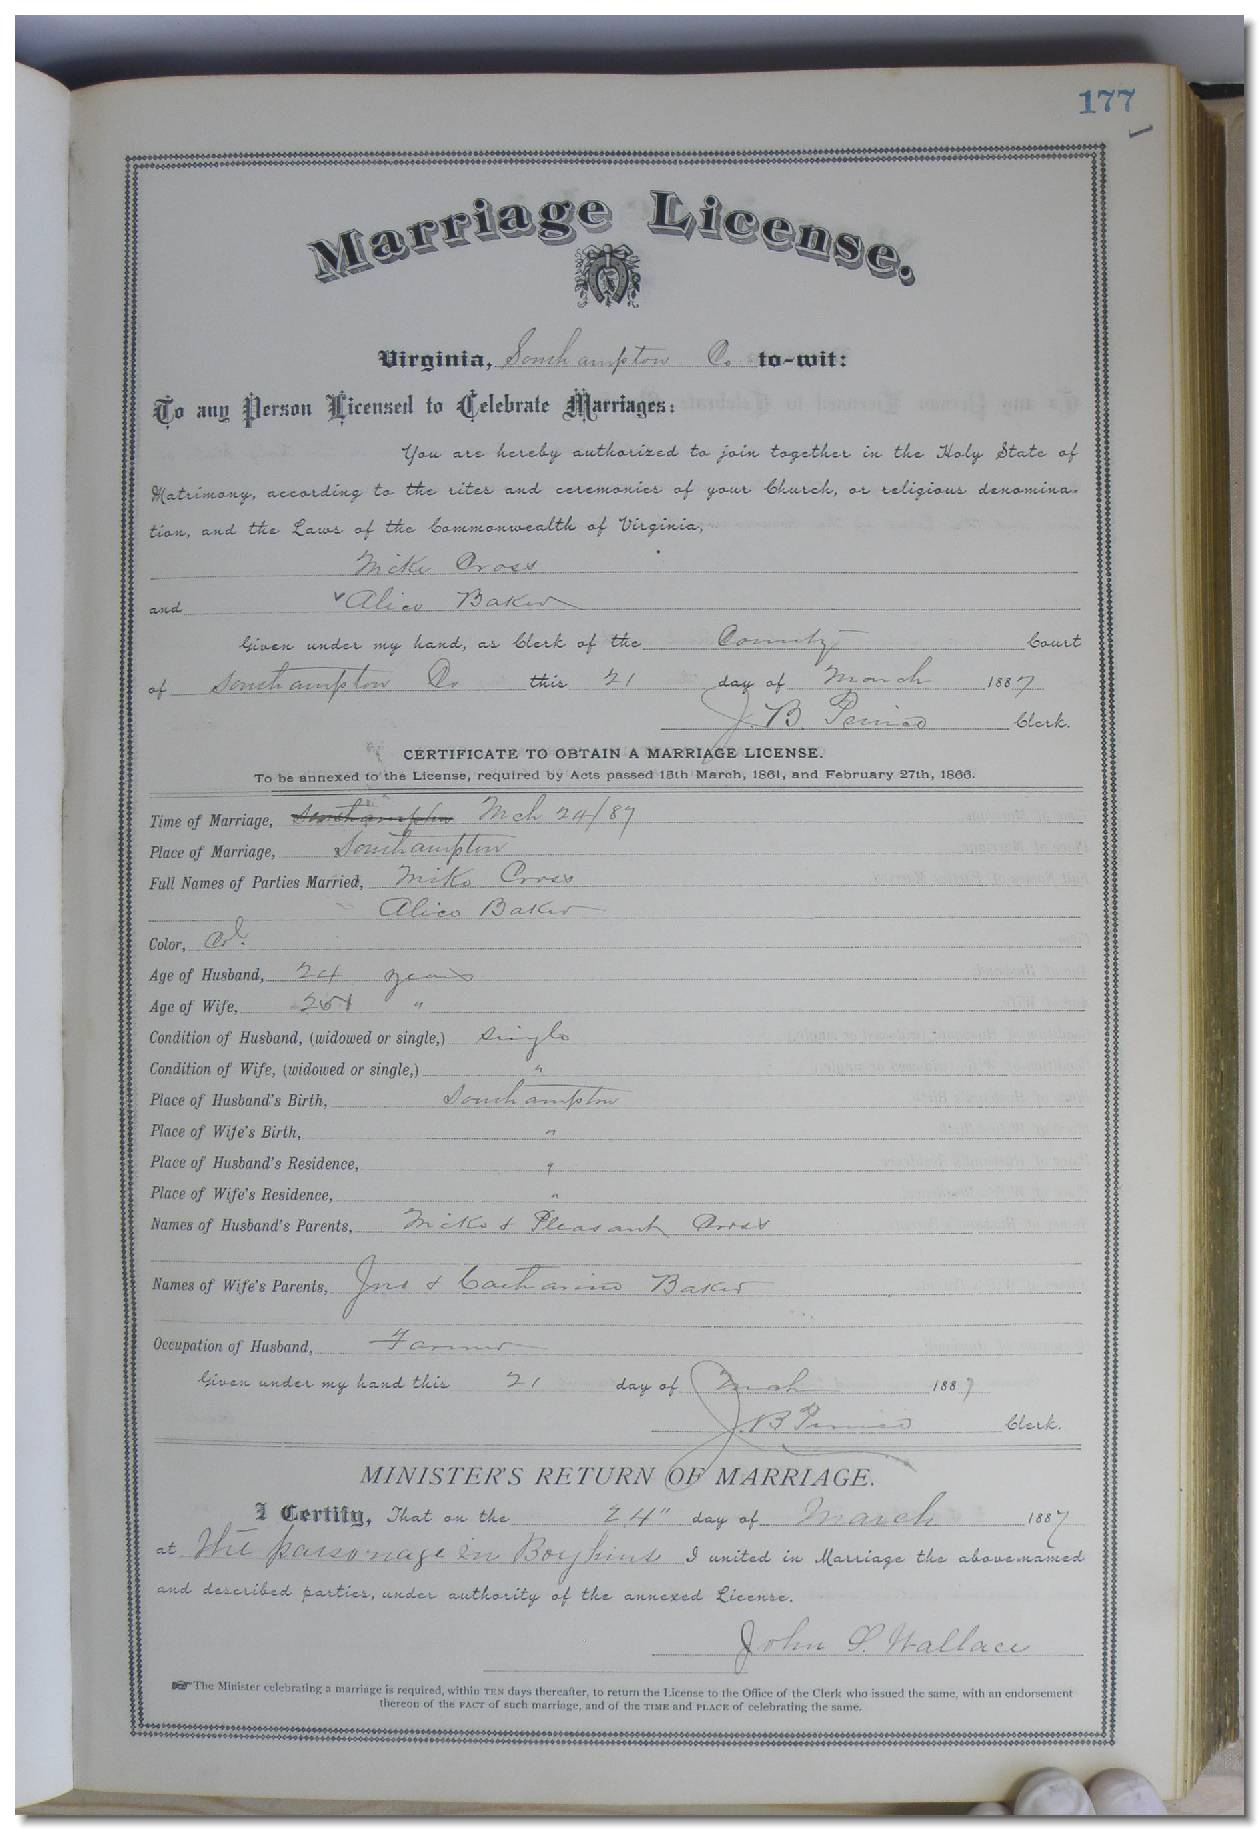 177
Marriage License.
Virginia, Southampton Co to-wit:
To any Person Licensed to Celebrate Marriages:
You are hereby authorized to join together in the Holy State of
Matrimony, according to the rites and ceremonies of your Church, or religious denomina-
tion, and the Laws of the Commonwealth of Virginia,
Mike Cross
and Alice Baker
Given under my hand, as Clerk of the County Court
of Southampton Co this 21 day of March 1887
J. B. Clerk.
CERTIFICATE TO OBTAIN A MARRIAGE LICENSE.
To be annexed to the License, required by Acts passed 15th March, 1861, and February 27th, 1866.
Time of Marriage, Southampton Mch 24/87
Place of Marriage, Southampton
Full Names of Parties Married, Mike Cross
Alice Baker
Color, Col.
Age of Husband, 24 years
Age of Wife, "
Condition of Husband, (widowed or single,) single
Condition of Wife, (widowed or single,) "
Place of Husband's Birth, Southampton
Place of Wife's Birth, "
Place of Husband's Residence, "
Place of Wife's Residence, "
Names of Husband's Parents, Mike & Pleasant Cross
Names of Wife's Parents, Jno & Catharine Baker
Occupation of Husband, Farmer
Given under my hand this 21 day of Mch 1887
J. B. Clerk.
MINISTER'S RETURN OF MARRIAGE.
I Certify, That on the 24" day of March 1887
at the parsonage in Boykins I united in Marriage the above-named
and described parties, under authority of the annexed License.
John S. Wallace
The Minister celebrating a marriage is required, within TEN days thereafter, to return the License to the Office of the Clerk who issued the same, with an endorsement
thereon of the FACT of such marriage, and of the TIME and PLACE of celebrating the same.